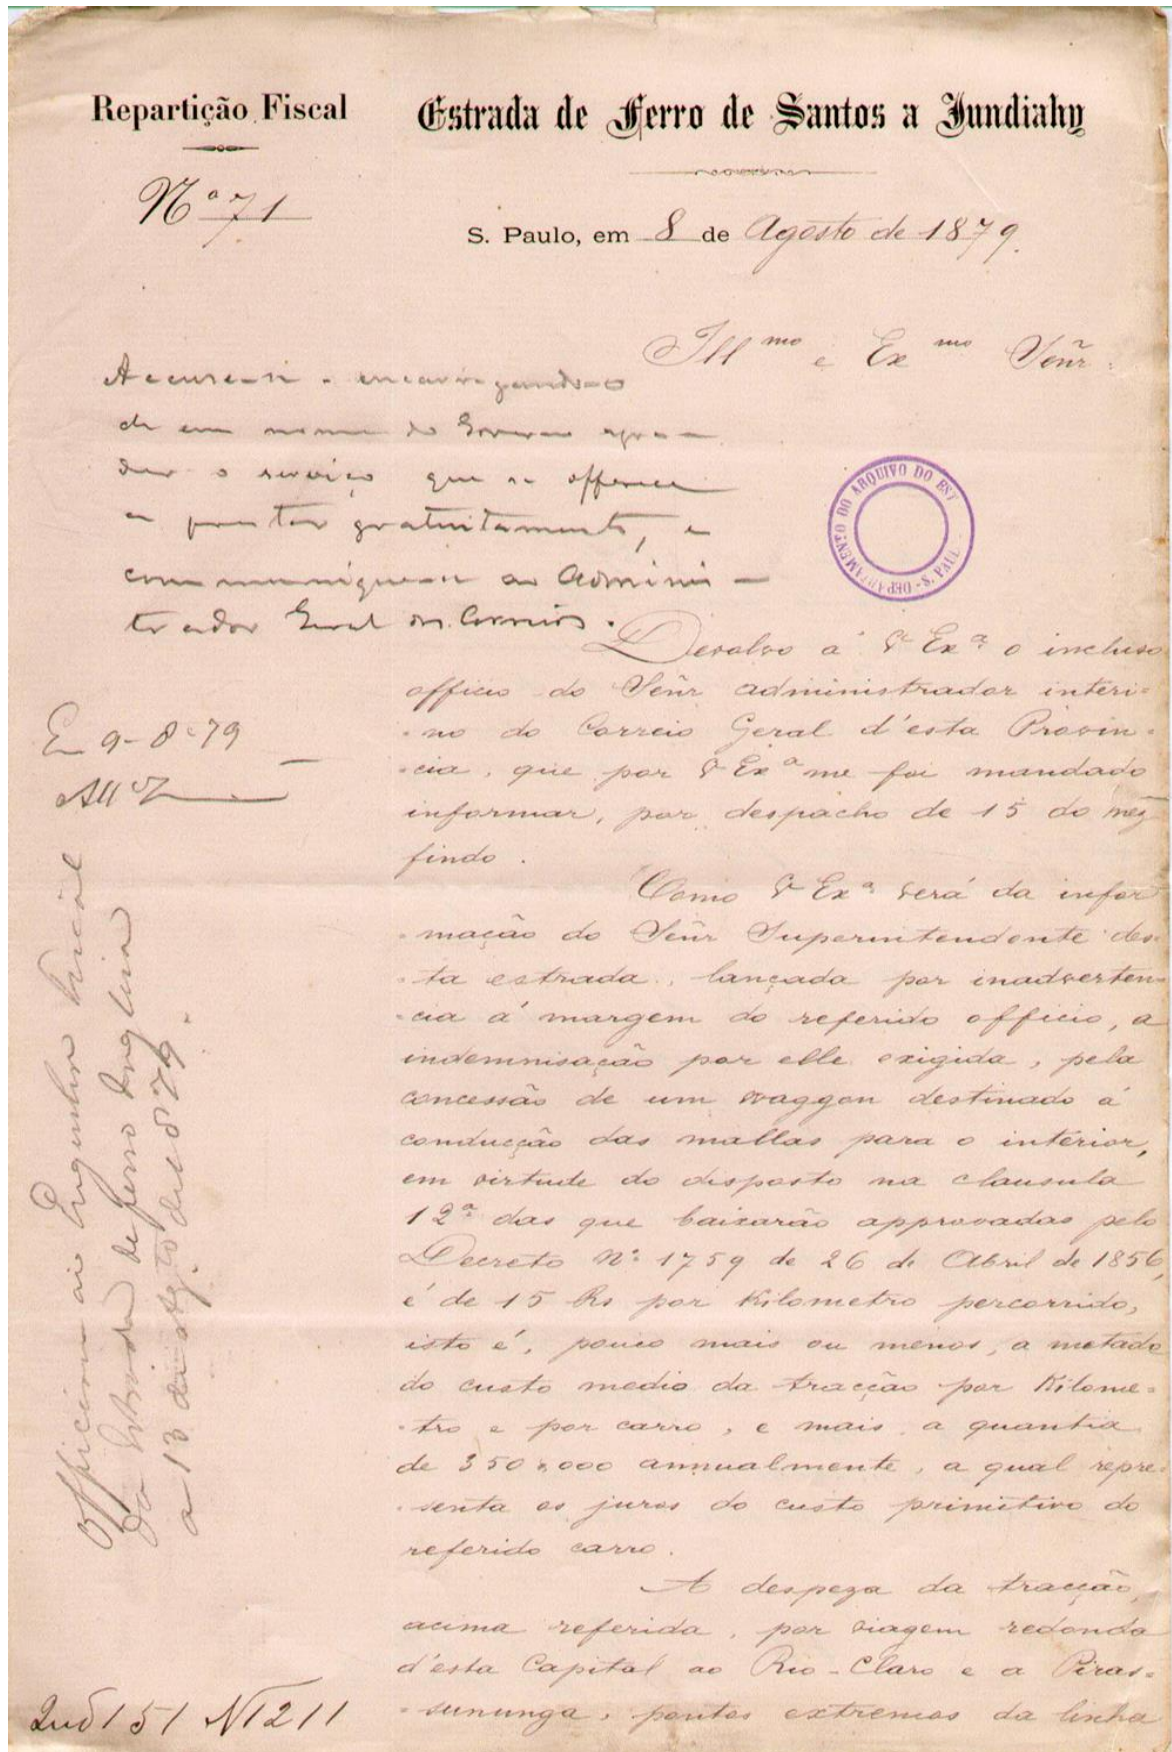 Repartição Fiscal
Estrada de Ferro de Santos a Jundiahy
Nº 71
S. Paulo, em 8 de Agosto de 1879.
Illmo e Exmo Señr.
Accuse-se encarregando-o
de em nome do Governo agra-
decer o serviço que se offerece
a prestar gratuitamente, e
communique-se ao Adminis-
trador Geral dos Correios.
DEPARTAMENTO DO ARQUIVO DO EST
S. PAUL
Em 9-8-79
Devolvo a Vª Exª o incluso
officio do Señr administrador interi-
-no do Correio Geral d'esta Provin-
-cia, que por Vª Exª me foi mandado
informar, por despacho de 15 do mez
findo.
Como Vª Exª verá da infor
-mação do Señr Superintendente des-
-ta estrada, lançada por inadverten-
-cia á margem do referido officio, a
indemnisação por elle exigida, pela
concessão de um waggon destinado á
conducção das mallas para o interior,
em virtude do disposto na clausula
12ª das que baixarão approvadas pelo
Decreto Nº 1759 de 26 de Abril de 1856,
é de 15 Rs por Kilometro percorrido,
isto é, pouco mais ou menos, a metade
do custo medio da tracção por Kilome-
-tro e por carro, e mais a quantia
de 350$000 annualmente, a qual repre-
-senta os juros do custo primitivo do
referido carro.
A despeza da tracção,
acima referida, por viagem redonda
d'esta Capital ao Rio-Claro e a Piras-
-sununga, pontos extremos da linha
Officiou-se ao Engenheiro Fiscal
da Estrada de ferro Ingleza
a 13 de Agto de 1879.
151 N 1211